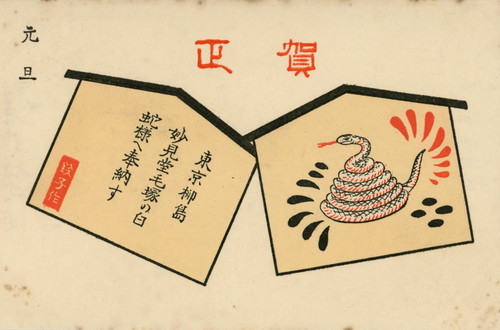 賀正
元旦
東京柳島
妙見堂毛塚の白
蛇様へ奉納す
子作